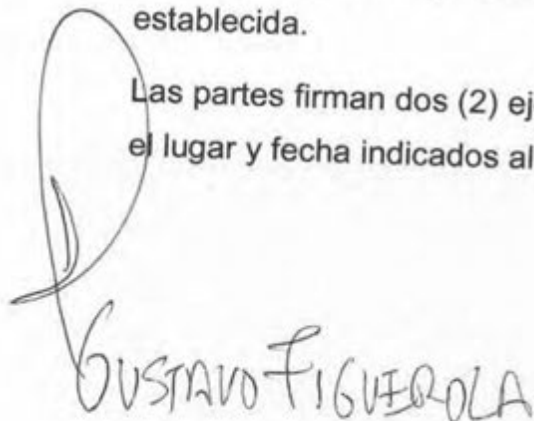 establecida.
Las partes firman dos (2) ej
el lugar y fecha indicados al
GUSTAVO FIGUEROLA